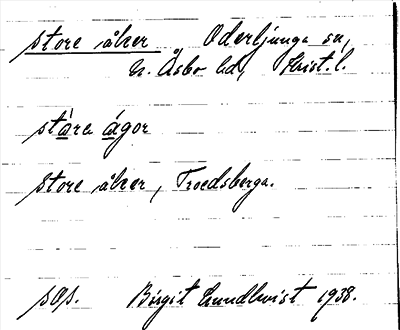 store åker Oderljunga sn,
N. Åsbo hd, Krist. l.
stàra ágor
store åker, Troedsberga.
sgs. Birgit Lundkvist 1938.